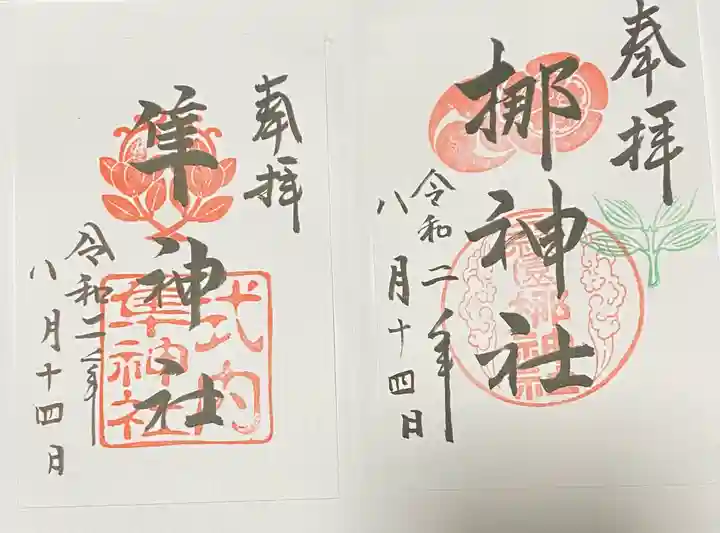 奉拝
梛神社
令和二年
八月十四日
元祇園梛神社
奉拝
隼神社
令和二年
八月十四日
式内
隼神社